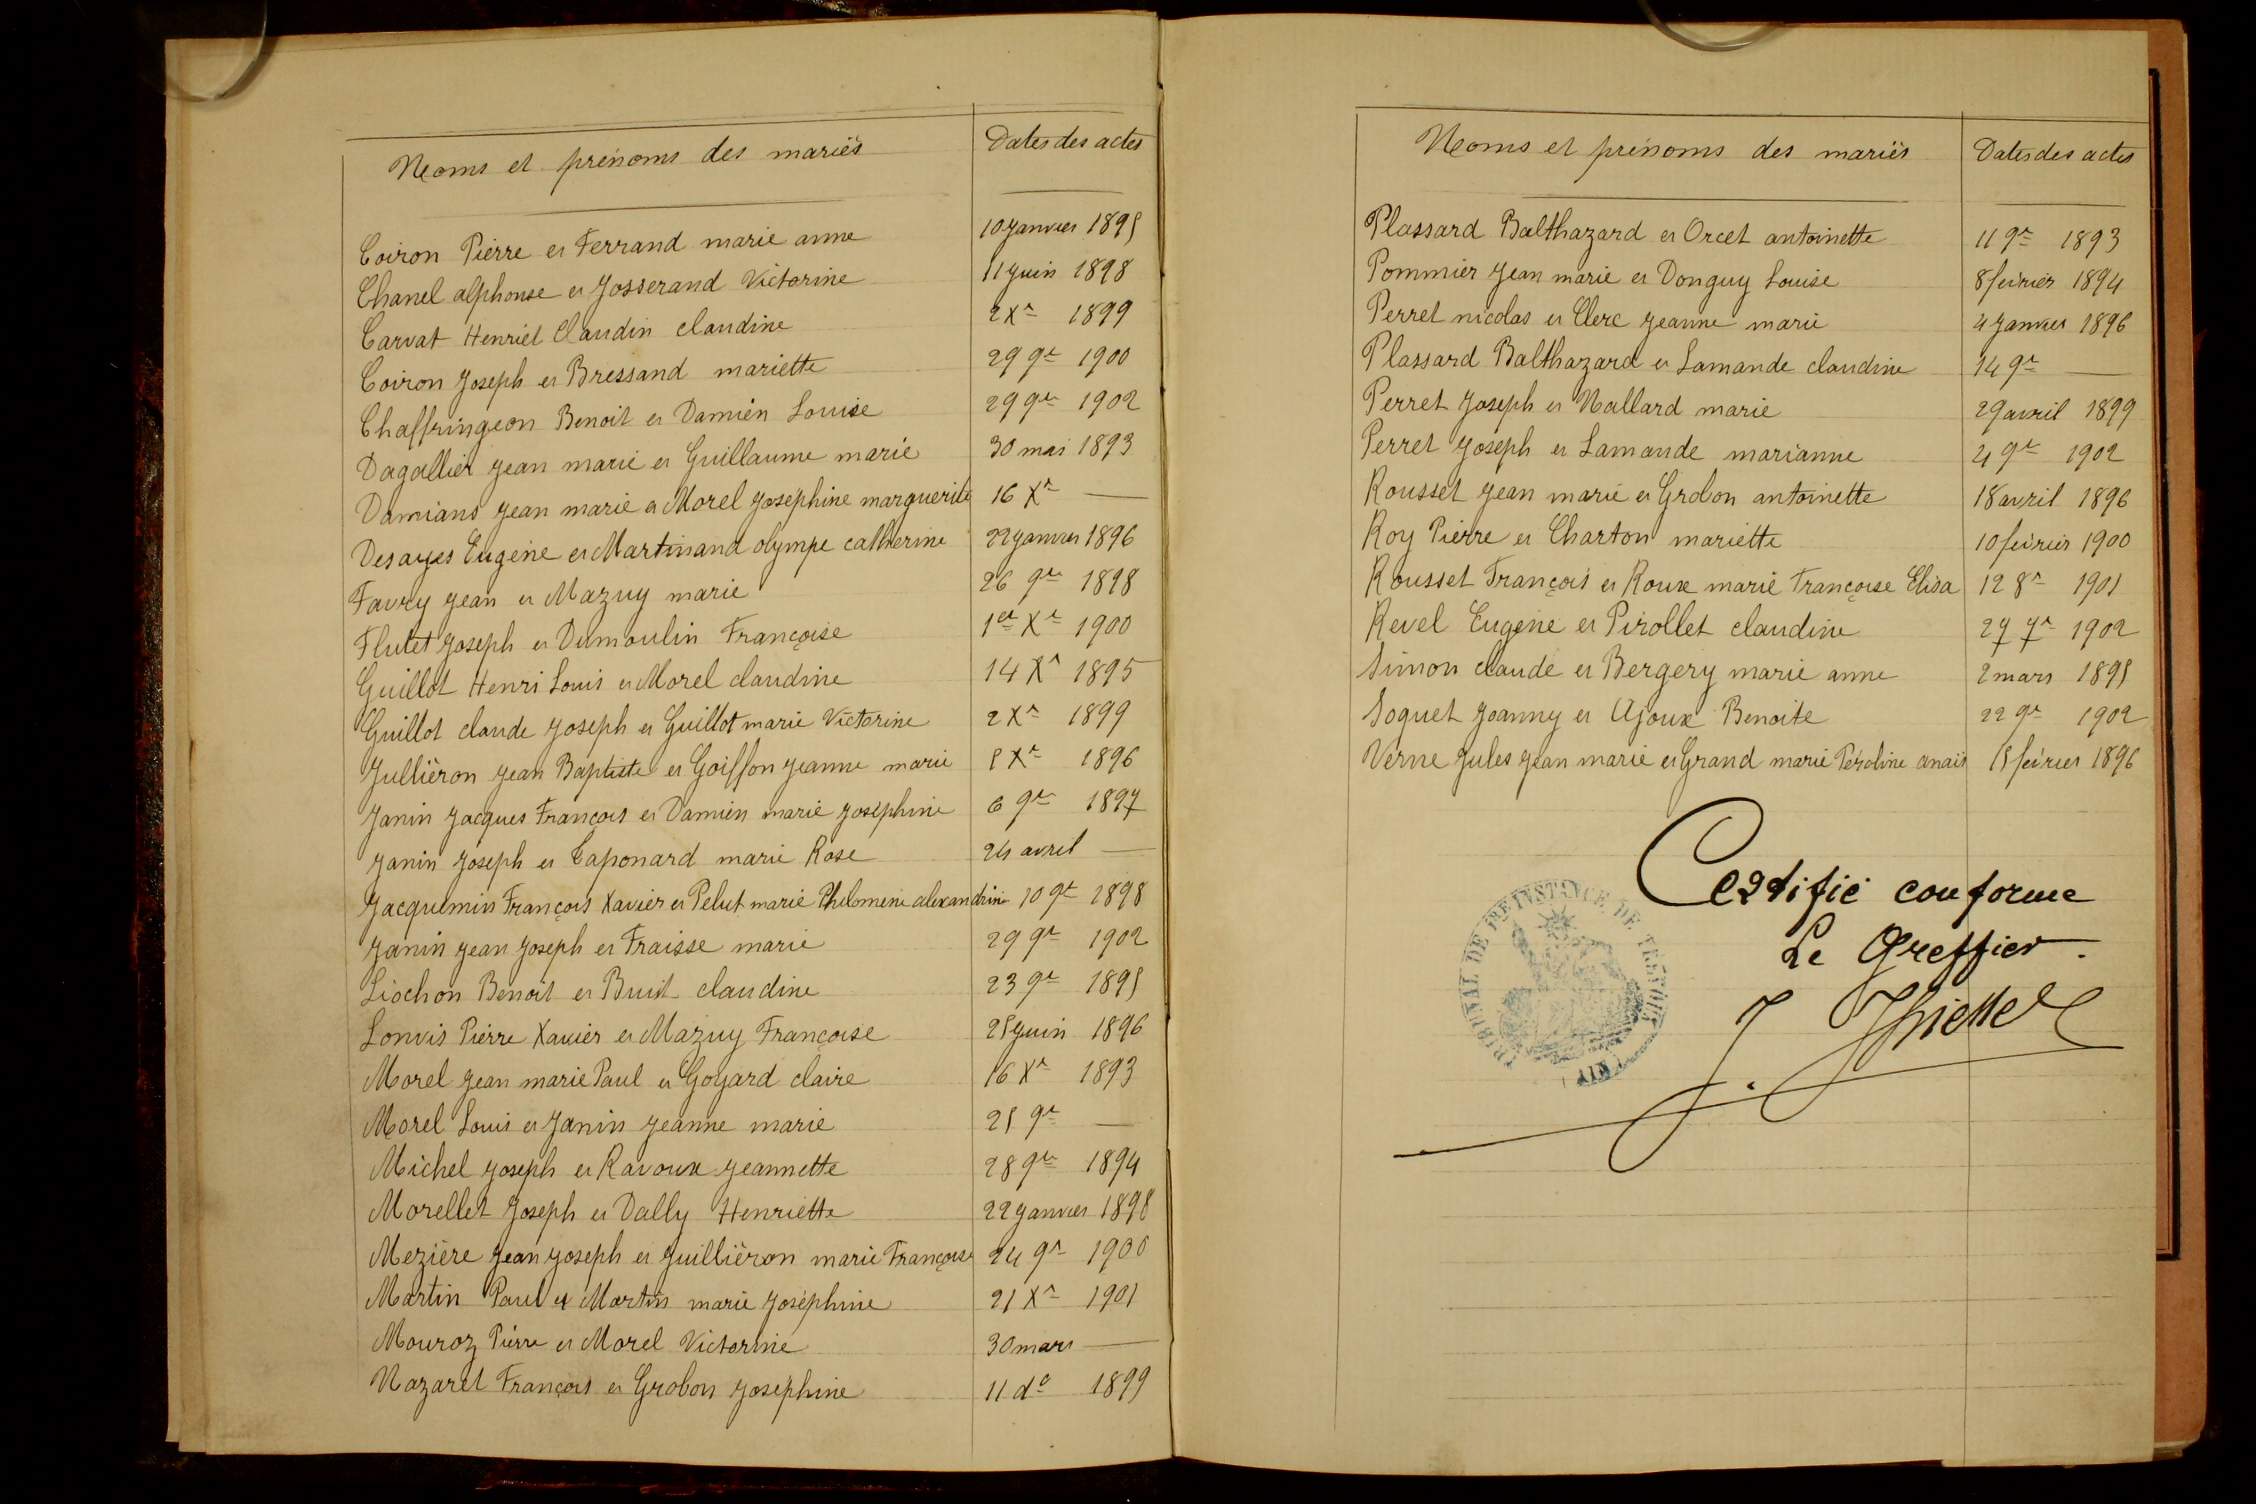 Noms et prénoms des mariés Dates des actes
Coiron Pierre et Ferrand marie anne 10 janvier 1895
Chanel alphonse et Josserand Victorine 11 juin 1898
Carvat Henri et Claudin claudine 2 Xre 1899
Coiron Joseph et Bressand mariette 29 9re 1900
Chaffringeon Benoit et Damien Louise 29 9re 1902
Dagallier jean marie et Guillaume marie 30 mai 1893
Damians jean marie et Morel Josephine marguerite 16 Xre —
Desayes Eugène et Martinand olympe catherine 22 janvier 1896
Favry jean et Mazuy marie 26 9re 1898
Flutet Joseph et Dumoulin Françoise 1er Xre 1900
Guillot Henri Louis et Morel claudine 14 Xre 1895
Guillot claude Joseph et Guillot marie Victorine 2 Xre 1899
Jullièron jean Baptiste et Goiffon jeanne marie 5 Xre 1896
Janin Jacques François et Damien marie joséphine 6 9re 1897
Janin Joseph et Caponard marie Rose 24 avril —
Jacquemin François Xavier et Pelut marie Philomène alexandrine 10 9re 1898
Janin jean Joseph et Fraisse marie 29 9re 1902
Liochon Benoît et Buist claudine 23 9re 1895
Lonvis Pierre Xavier et Mazuy Françoise 25 juin 1896
Morel jean marie Paul et Goyard claire 16 Xre 1893
Morel Louis et Janin jeanne marie 25 9re —
Michel joseph et Ravoux jeannette 28 9re 1894
Morellet Joseph et Dally Henriette 22 janvier 1898
Mezière jean joseph et juillièron marie Françoise 24 9re 1900
Martin Paul et Martin marie joséphine 21 Xre 1901
Mouroz Pierre et Morel Victorine 30 mars —
Nazaret François et Grobon joséphine 11 do 1899
Noms et prénoms des mariés Dates des actes
Plassard Balthazard et Orcet antoinette 11 9re 1893
Pommier jean marie et Donguy Louise 8 février 1894
Perret nicolas et Clerc jeanne marie 4 janvier 1896
Plassard Balthazard et Lamande claudine 14 9re —
Perret Joseph et Nallard marie 29 avril 1899
Perret Joseph et Lamande marianne 4 9re 1902
Rousset jean marie et Grobon antoinette 18 avril 1896
Roy Pierre et Charton mariette 10 février 1900
Rousset François et Roux marie Françoise Elisa 12 8re 1901
Revel Eugène et Pirollet claudine 27 7re 1902
Simon claude et Bergery marie anne 2 mars 1895
Soquet Joanny et Ajoux Benoite 22 9re 1902
Verne Jules jean marie et Grand marie Péroline anaïs 15 février 1896
Certifié conforme
Le Greffier.
TRIBUNAL DE 1RE INSTANCE DE TREVOUX
(AIN)